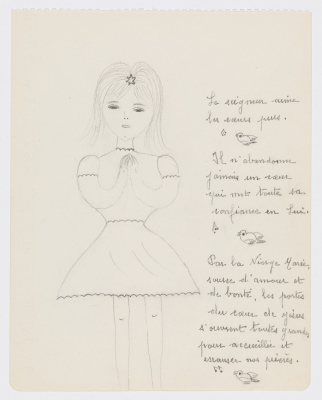 Le seigneur aime
les cœurs purs.
Il n'abandonne
jamais un cœur
qui met toute sa
confiance en Lui.
Par la Vierge Marie,
source d'amour et
de bonté, les portes
du cœur de Jésus
s'ouvrent toutes grandes
pour accueillir et
exaucer nos prières.